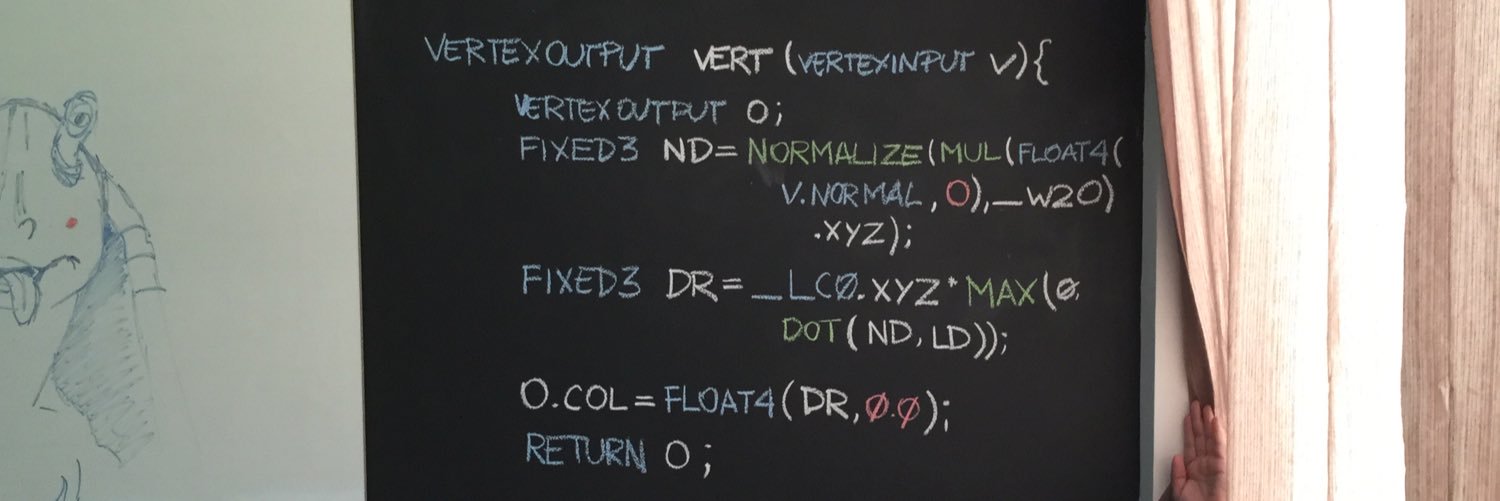 VERTEXOUTPUT VERT (VERTEXINPUT V){
VERTEXOUTPUT O;
FIXED3 ND=NORMALIZE(MUL(FLOAT4(
V.NORMAL,0),_W2O)
.XYZ);
FIXED3 DR=_LCØ.XYZ*MAX(Ø,
DOT(ND,LD));
O.COL=FLOAT4(DR,Ø.Ø);
RETURN O;